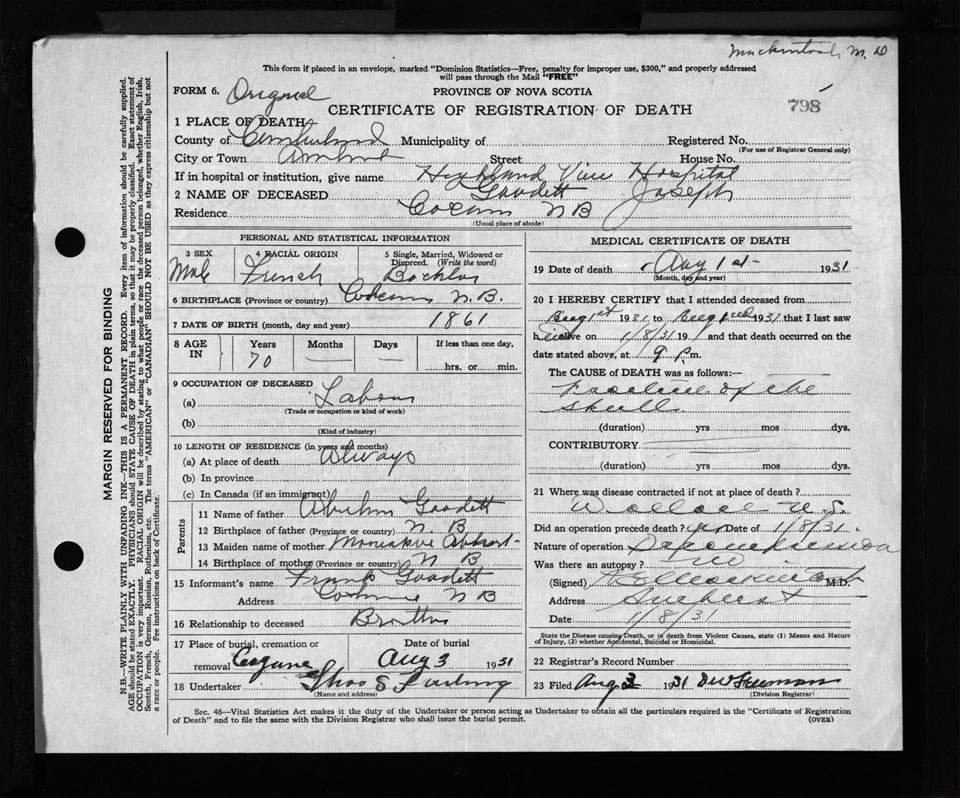 Mackintosh, M. D
This form if placed in an envelope, marked "Dominion Statistics—Free, penalty for improper use, $300," and properly addressed
will pass through the Mail "FREE"
FORM 6. Original PROVINCE OF NOVA SCOTIA
CERTIFICATE OF REGISTRATION OF DEATH 798
1 PLACE OF DEATH
County of Cumberland Municipality of Registered No.
(For use of Registrar General only)
City or Town Amherst Street House No.
If in hospital or institution, give name Highland View Hospital
2 NAME OF DECEASED Goodett Joseph
Residence N B
(Usual place of abode)
PERSONAL AND STATISTICAL INFORMATION
3 SEX 4 RACIAL ORIGIN 5 Single, Married, Widowed or Divorced. (Write the word)
Male French Bachlor
6 BIRTHPLACE (Province or country) N. B.
7 DATE OF BIRTH (month, day and year) 1861
8 AGE IN Years Months Days If less than one day,
70 — — hrs. or min.
9 OCCUPATION OF DECEASED
(a) Labour
(Trade or occupation or kind of work)
(b)
(Kind of industry)
10 LENGTH OF RESIDENCE (in years and months)
(a) At place of death Always
(b) In province
(c) In Canada (if an immigrant)
Parents
11 Name of father Goodett
12 Birthplace of father (Province or country) N B
13 Maiden name of mother
14 Birthplace of mother (Province or country) N B
15 Informant's name Frank Goodett
Address N B
16 Relationship to deceased Brother
17 Place of burial, cremation or removal Date of burial
Aug 3 1931
18 Undertaker Thos S
(Name and address)
MEDICAL CERTIFICATE OF DEATH
19 Date of death Aug 1st 1931
(Month, day and year)
20 I HEREBY CERTIFY that I attended deceased from
Aug 1st 1931 to 1931 that I last saw
h alive on 1/8/31 19 and that death occurred on the
date stated above, at 9 P.m.
The CAUSE of DEATH was as follows:—
Fracture of the
Skull
(duration) yrs mos dys.
CONTRIBUTORY
(duration) yrs mos dys.
21 Where was disease contracted if not at place of death?
Wallace N. S.
Did an operation precede death? yes Date of 1/8/31.
Nature of operation Decompression
Was there an autopsy? no
(Signed) Mackintosh M.D.
Address Amherst
Date 1/8/31
State the Disease causing Death, or in death from Violent Causes, state (1) Means and Nature
of Injury, (2) whether Accidental, Suicidal or Homicidal.
22 Registrar's Record Number
23 Filed Aug 3 1931 Freeman
(Division Registrar)
Sec. 46—Vital Statistics Act makes it the duty of the Undertaker or person acting as Undertaker to obtain all the particulars required in the "Certificate of Registration
of Death" and to file the same with the Division Registrar who shall issue the burial permit. (OVER)
MARGIN RESERVED FOR BINDING
N.B.—WRITE PLAINLY WITH UNFADING INK—THIS IS A PERMANENT RECORD. Every item of information should be carefully supplied.
AGE should be stated EXACTLY. PHYSICIANS should STATE CAUSE OF DEATH in plain terms, so that it may be properly classified. Exact statement of
OCCUPATION is very important. RACIAL ORIGIN will be described by stating to what people or race the deceased person belonged, whether English, Irish,
Scotch, French, German, Russian, Ruthenian, etc. The terms "AMERICAN" or "CANADIAN" SHOULD NOT BE USED as they express citizenship but not
a race or people. See instructions on back of Certificate.